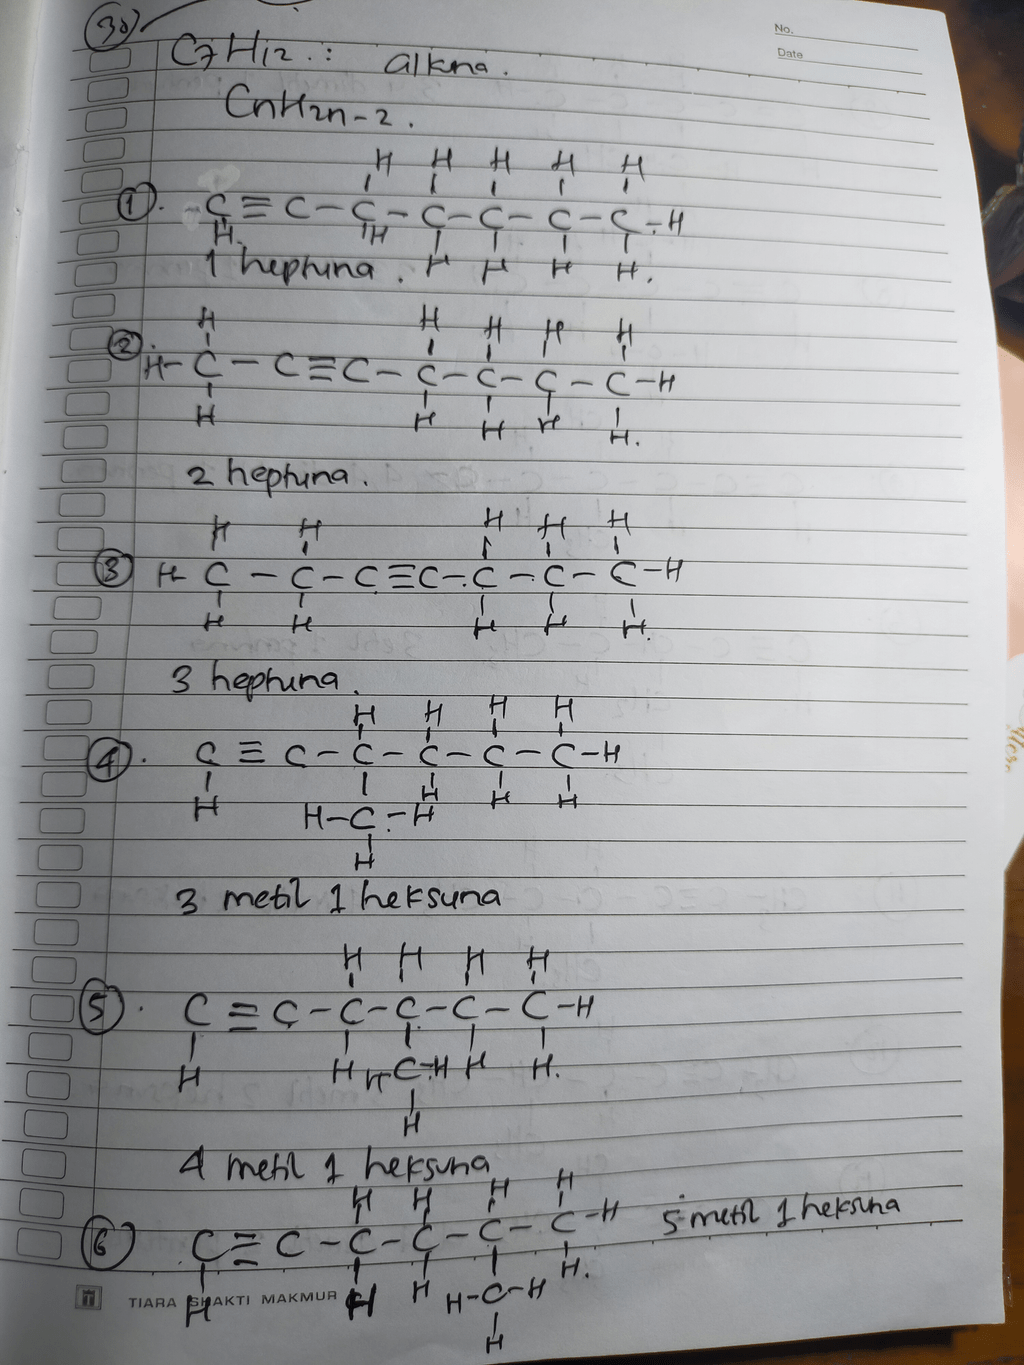 30
No.
Date
C7H12 : alkna.
CnH2n-2.
H H H H H
1. C ≡ C - C - C - C - C - C - H
H H H H H H.
1 heptuna.
H H H H H
2. H - C - C ≡ C - C - C - C - C - H
H H H H H.
2 heptuna.
H H H H H
3 H - C - C - C ≡ C - C - C - C - H
H H H H H.
3 heptuna.
H H H H
4. C ≡ C - C - C - C - C - H
H H H H
H - C - H
H
3 metil 1 heksuna
H H H H
5. C ≡ C - C - C - C - C - H
H H H - C - H H H.
H
4 metil 1 heksuna
H H H H
6 C ≡ C - C - C - C - C - H 5 metil 1 heksuna
H H H H - C - H H.
H
TIARA SHAKTI MAKMUR